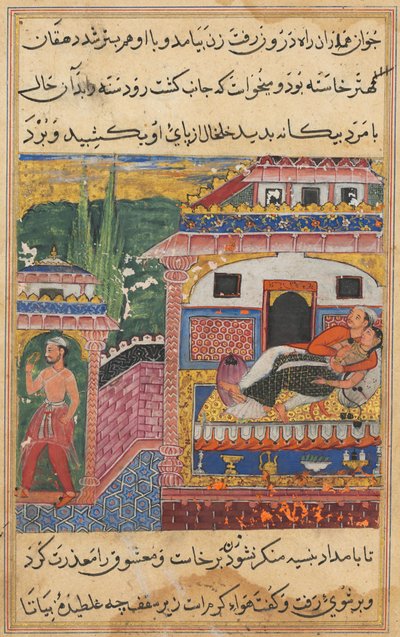 جوان همدران راه درون رفت زن بیامد و با او هم بستر شد دهقان
مهتر خاسته بود و میخواست که جانب کشت رود سته را بدان حالی
با مرد بیکانه بدید خلخال از پای او بکشید و ببرد
تا بامداد منکر نشود زن برخاست و معشوق را معذرت کرد
و بر شوی رفت و کفت هواء کرم است زیر سقف چه غلطیدهٔ بیا تا